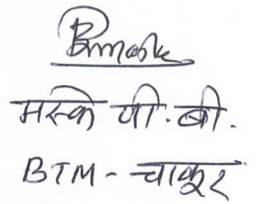 Bmaske
मस्के पी. बी.
BTM - चाकूर